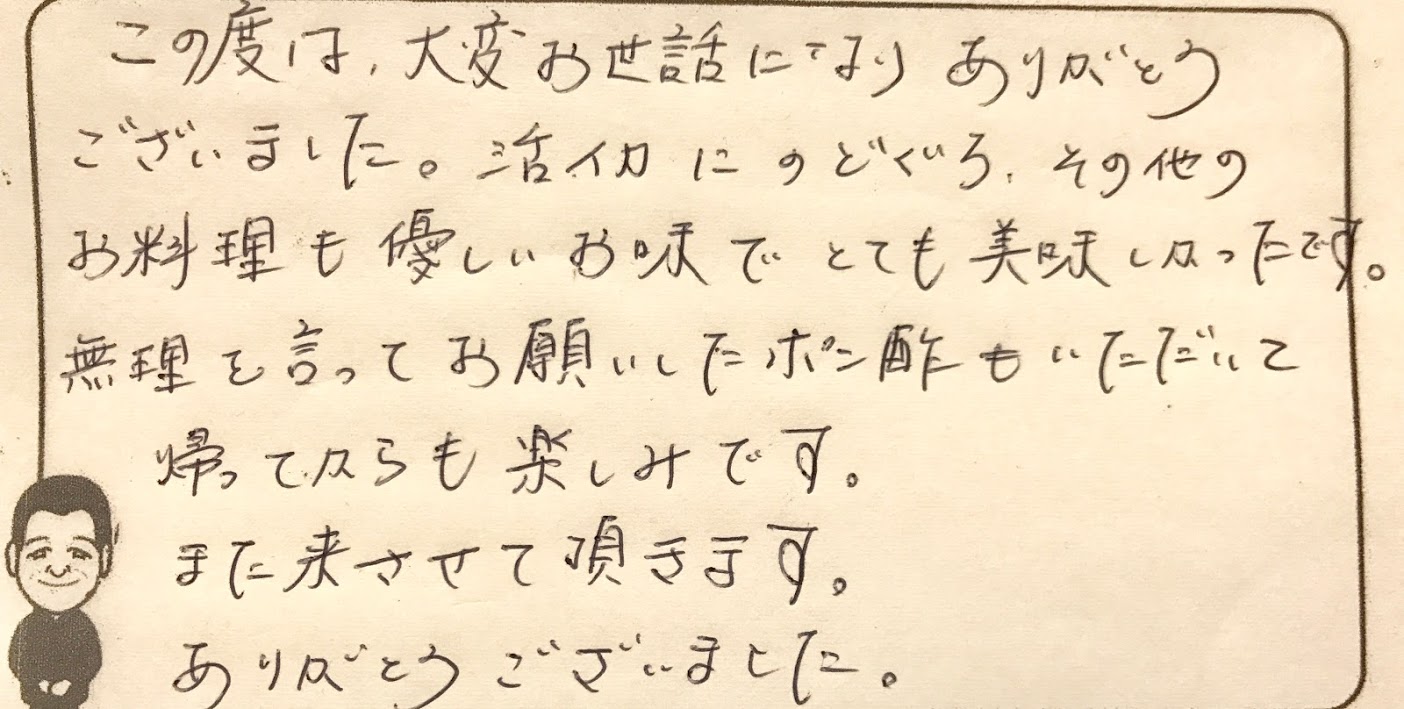 この度は、大変お世話になりありがとう
ございました。活イカにのどぐろ、その他の
お料理も優しいお味でとても美味しかったです。
無理を言ってお願いしたポン酢もいただいて
帰ってからも楽しみです。
また来させて頂きます。
ありがとうございました。